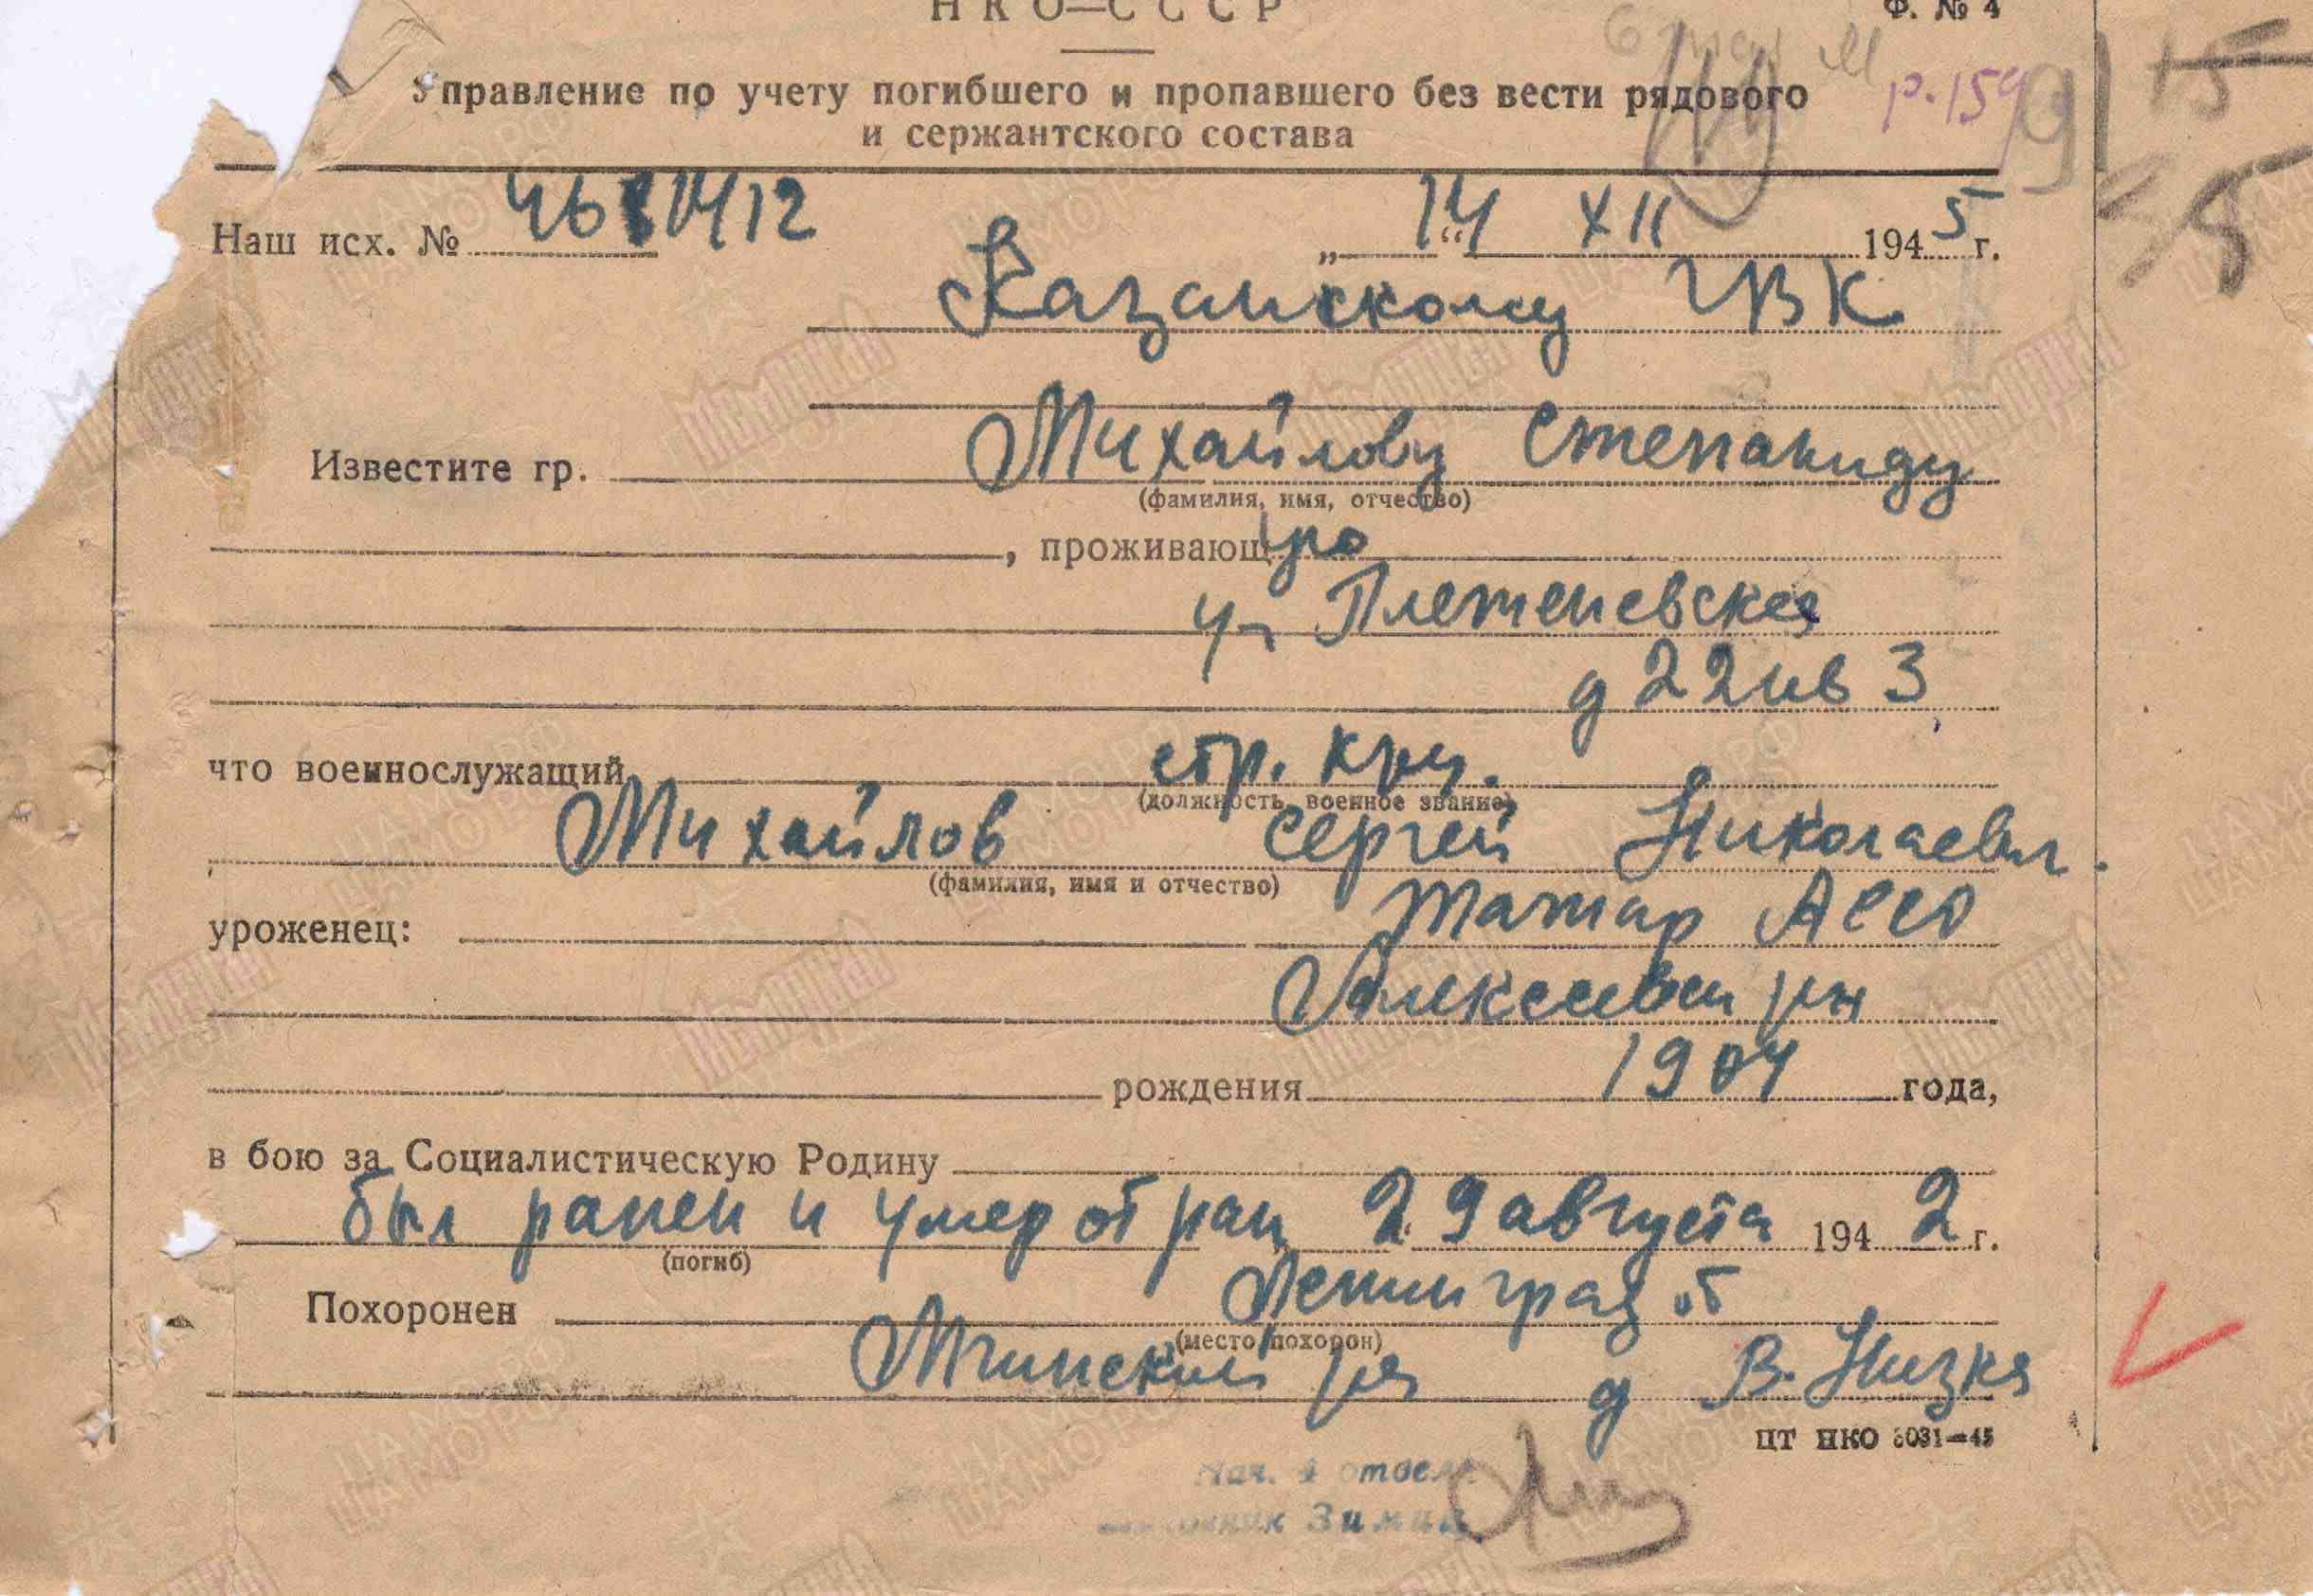 НКО—СССР
Ф. № 4
Управление по учету погибшего и пропавшего без вести рядового
и сержантского состава
р. 154
9
15
Наш исх. №
„ 14 “ XII 1945 г.
Казанскому ГВК
Известите гр. Михайлову Степаниду
(фамилия, имя, отчество)
, проживающую
ул Плетеневская
д 22 кв 3
что военнослужащий стр. кр.
(должность, военное звание)
Михайлов Сергей Николаевич.
(фамилия, имя и отчество)
уроженец: Татар АССР
Алексеевск рн
рождения 1904 года,
в бою за Социалистическую Родину
был ранен и умер от ран 29 августа 1942 г.
(погиб)
Похоронен Ленинград. об
(место похорон)
Мгинский рн д В. Низкя
ЦТ НКО 6031—45
Нач. 4 отдел
Зимин